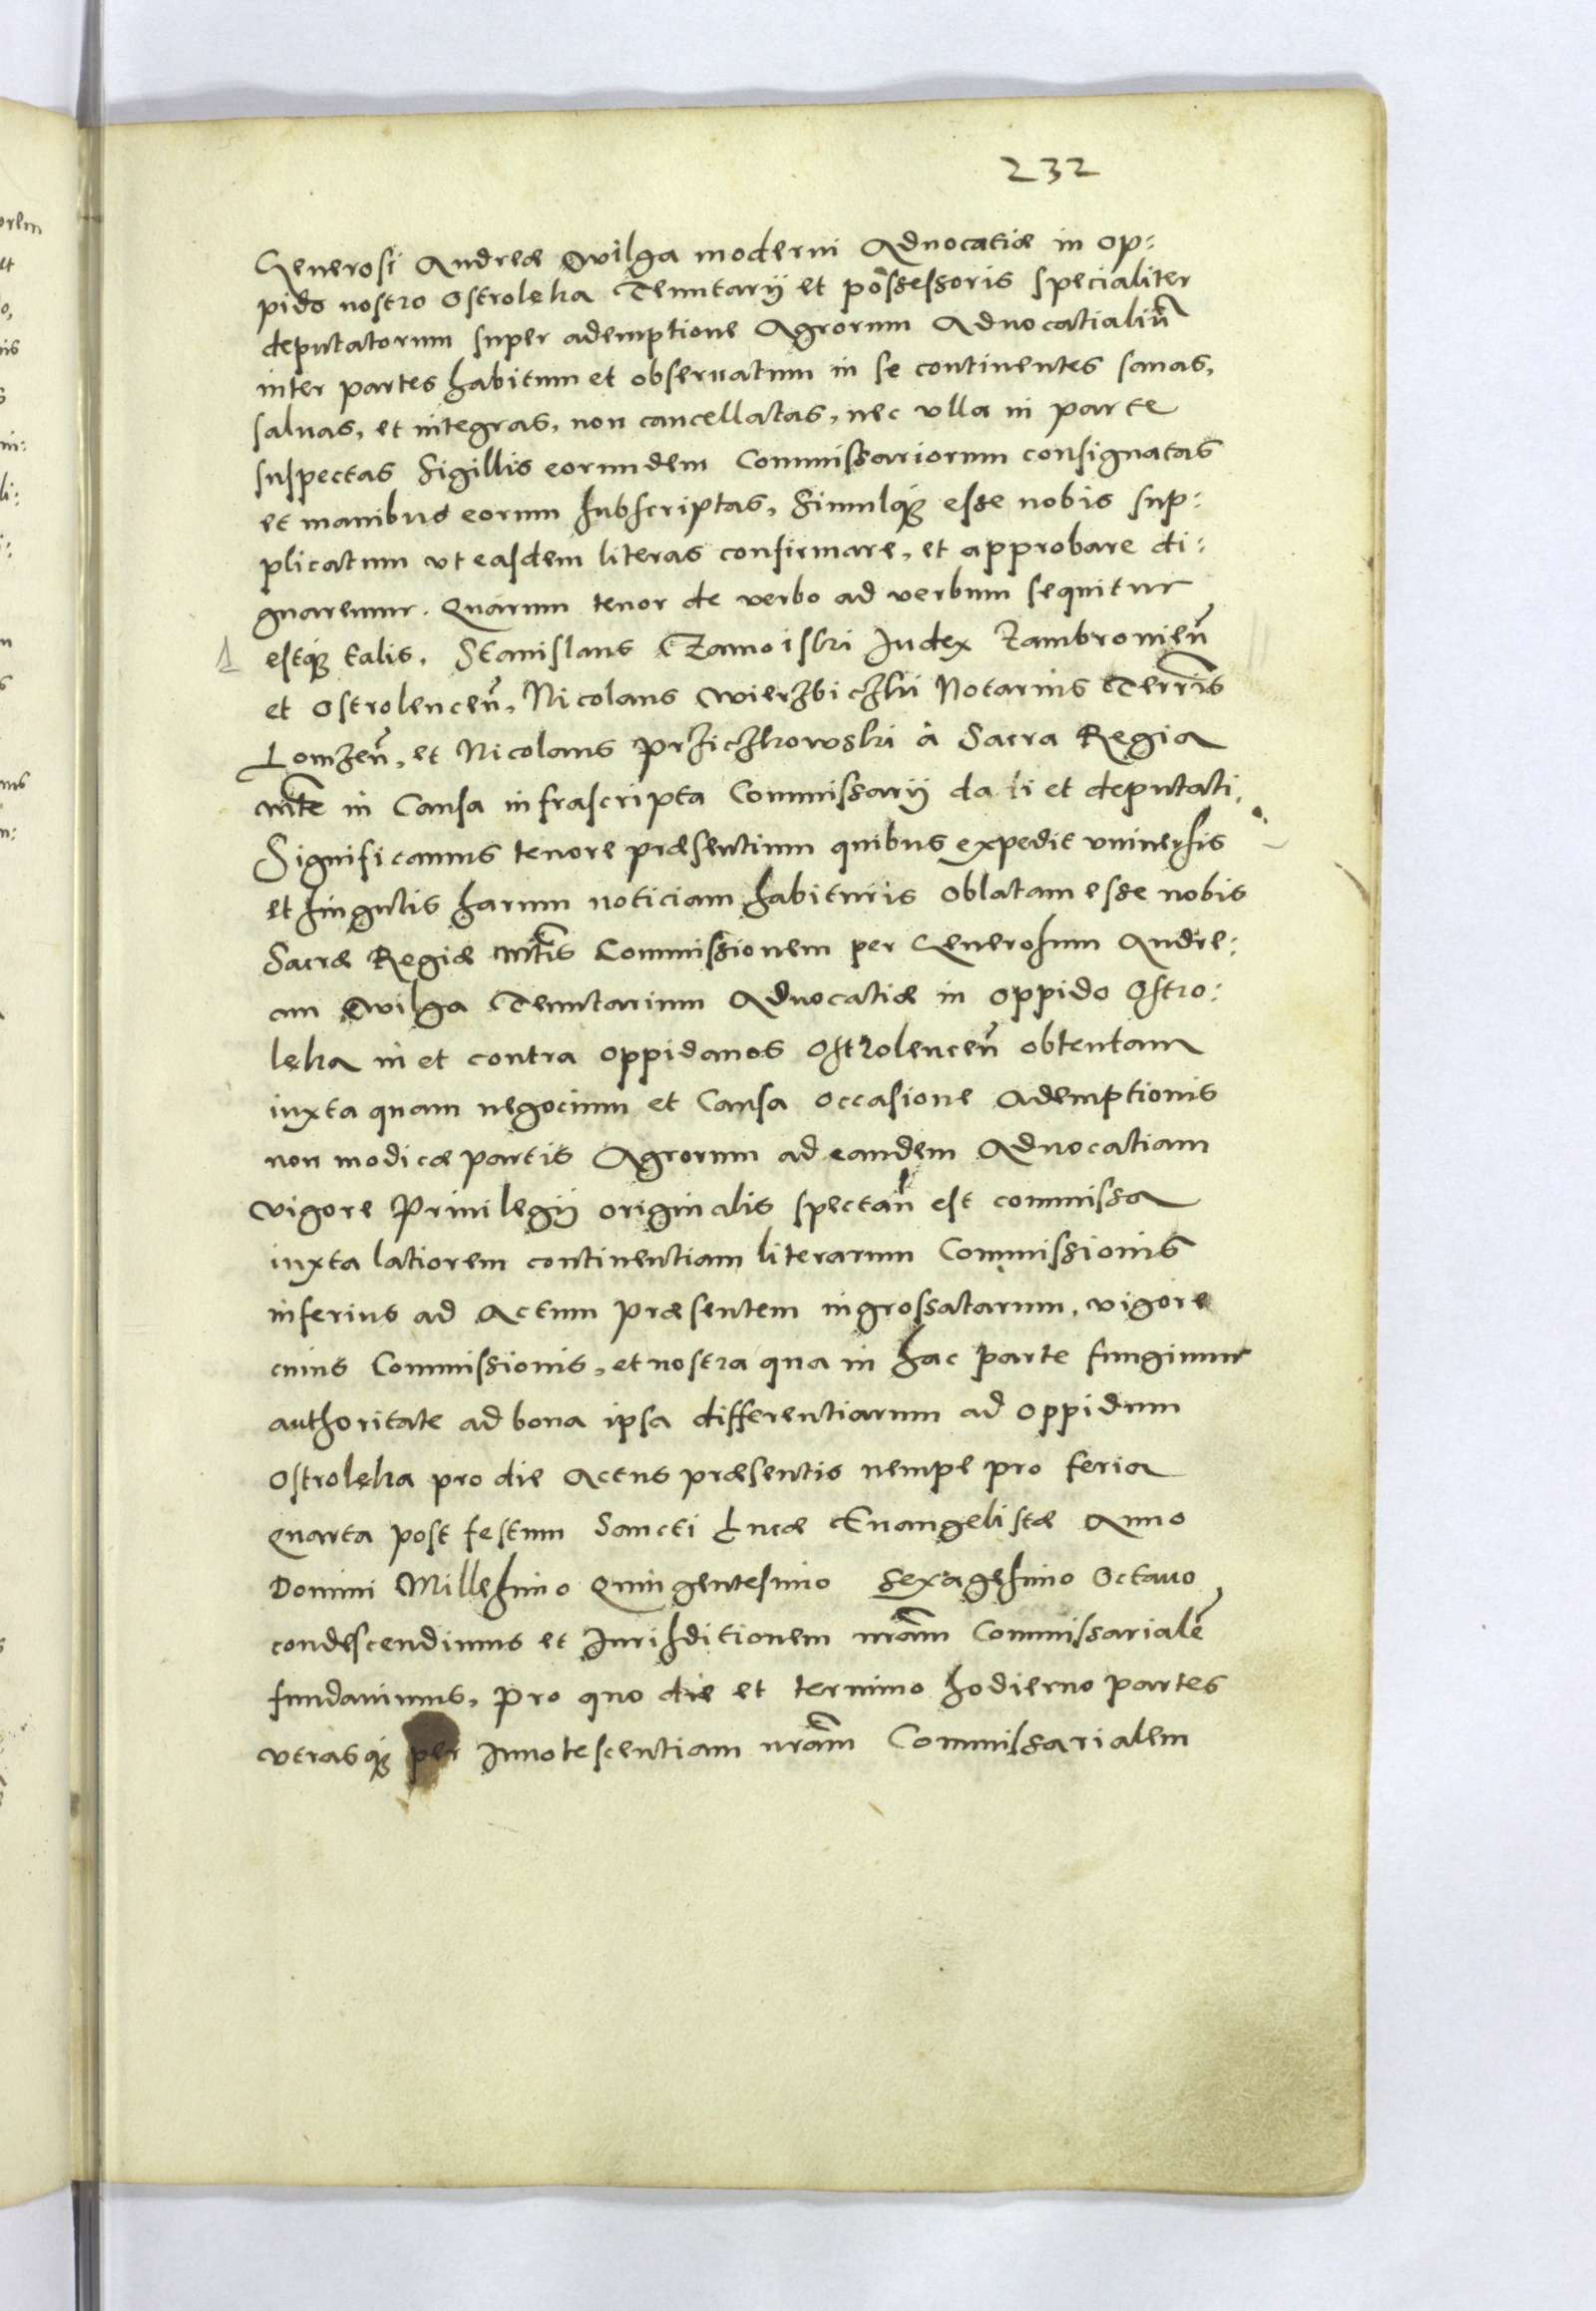 232
Generosi Andreæ Wilga moderni Aduocatiæ in op:
pido nostro Ostrolęka Tenutarÿ et possessoris specialiter
deputatorum super ademptione Agrorum Aduocatialiũ
inter partes habitum et obseruatum in se continentes sanas,
saluas, et integras, non cancellatas, nec vlla in parte
suspectas Sigillis eorundem Commissariorum consignatas
et manibus eorum subscriptas, Simulq́ȝ esse nobis sup:
plicatum vt easdem literas confirmare, et approbare di:
gnaremur. Quarum tenor de verbo ad verbum sequitur
estq́ȝ talis. Stanislaus Czamoiski Judex Zambrovieñ
et Ostrolenceñ, Nicolaus Wierzbiczkii Notarius Terrñs
Lomzeñ, et Nicolaus Prziczkowski à Sacra Regia
Mte in Causa infrascripta Commissarÿ dati et deputati,
Significamus tenore præsentium quibus expedit vniuersis
et singulis harum noticiam habituris oblatam esse nobis
Sacræ Regiæ Mtis Commissionem per Generosum Andre:
am Wilga Tenutarium Aduocatiæ in oppido Ostro:
lęka in et contra oppidanos Ostrolenceñ obtentam
iuxta quam negocium et Causa occasione Ademptionis
non modicæ partis Agrorum ad eandem Aduocatiam
vigore Priuilegÿ originalis spectañ est commissa
iuxta latiorem continentiam literarum Commissionis
inferius ad Actum præsentem ingrossatarum, vigore
cuius Commissionis, et nostra qua in hac parte fungimur
authoritate ad bona ipsa differentiarum ad oppidum
Ostrolęka pro die Actus præsentis nempe pro feria
quarta post festum Sancti Lucæ Euangelistæ Anno
Domini Millesimo Quingentesimo Sexagesimo Octauo
condescendimus et Jurisditionem nrãm Commissarialẽ
fundauimus, Pro quo die et termino hodierno partes
vtrasq́ȝ per Innotescentiam nrãm Commissarialem